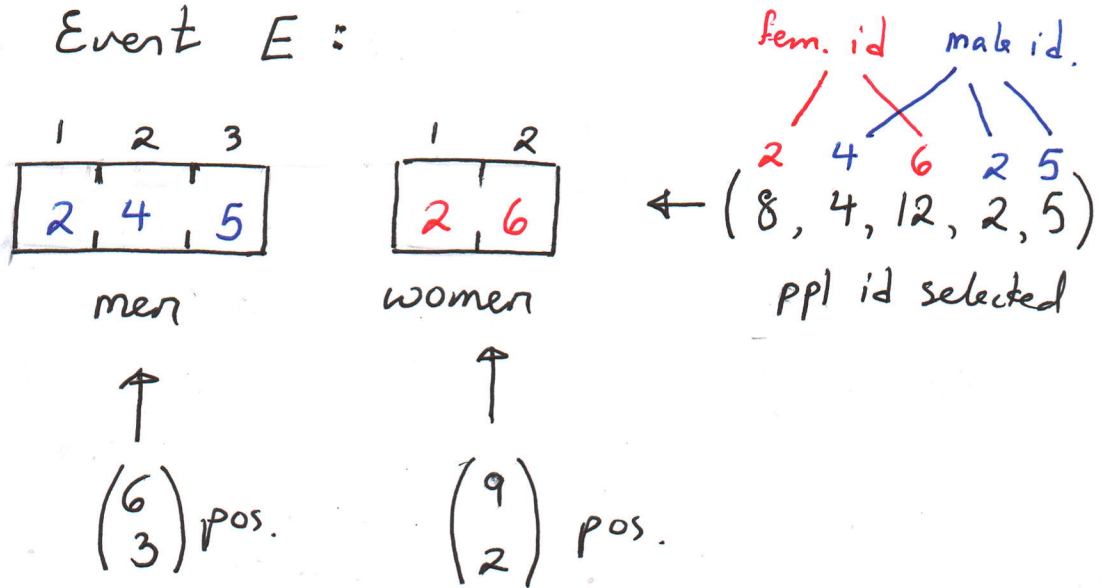 Event E :
fem. id male id.
1 2 3
1 2
2 4 6 2 5
2 4 5
2 6
← (8, 4, 12, 2, 5)
men
women
ppl id selected
(6 3) pos.
(9 2) pos.